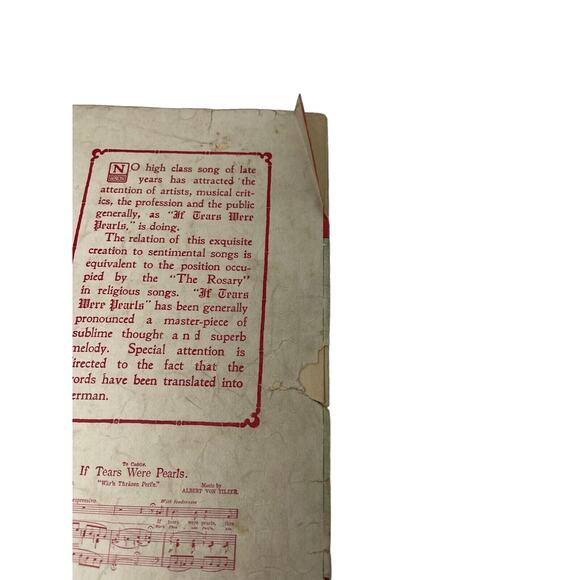 NO high class song of late
years has attracted the
attention of artists, musical crit-
ics, the profession and the public
generally, as "If Tears Were
Pearls," is doing.
The relation of this exquisite
creation to sentimental songs is
equivalent to the position occu-
pied by the "The Rosary"
in religious songs. "If Tears
Were Pearls" has been generally
pronounced a master-piece of
sublime thought and superb
melody. Special attention is
directed to the fact that the
words have been translated into
erman.
If Tears Were Pearls.
Music by
ALBERT VON TILZER.
expressivo.
With tenderness
If tears were pearls,